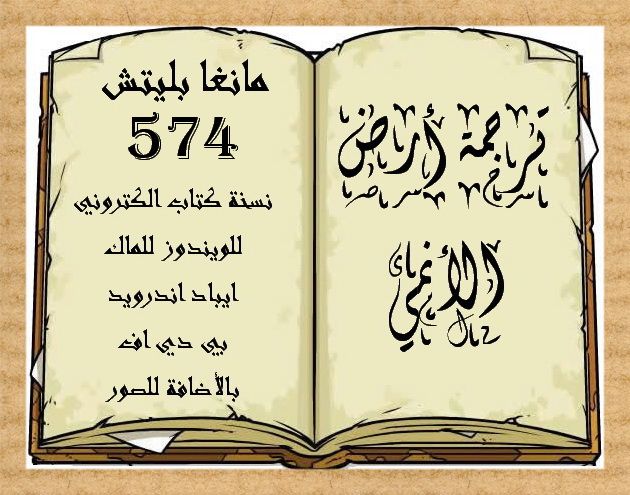 ترجمة أرض
الأنمي
مانغا بليتش
574
نسخة كتاب الكتروني
للويندوز للماك
ايباد اندرويد
بي دي اف
بالأضافة للصور